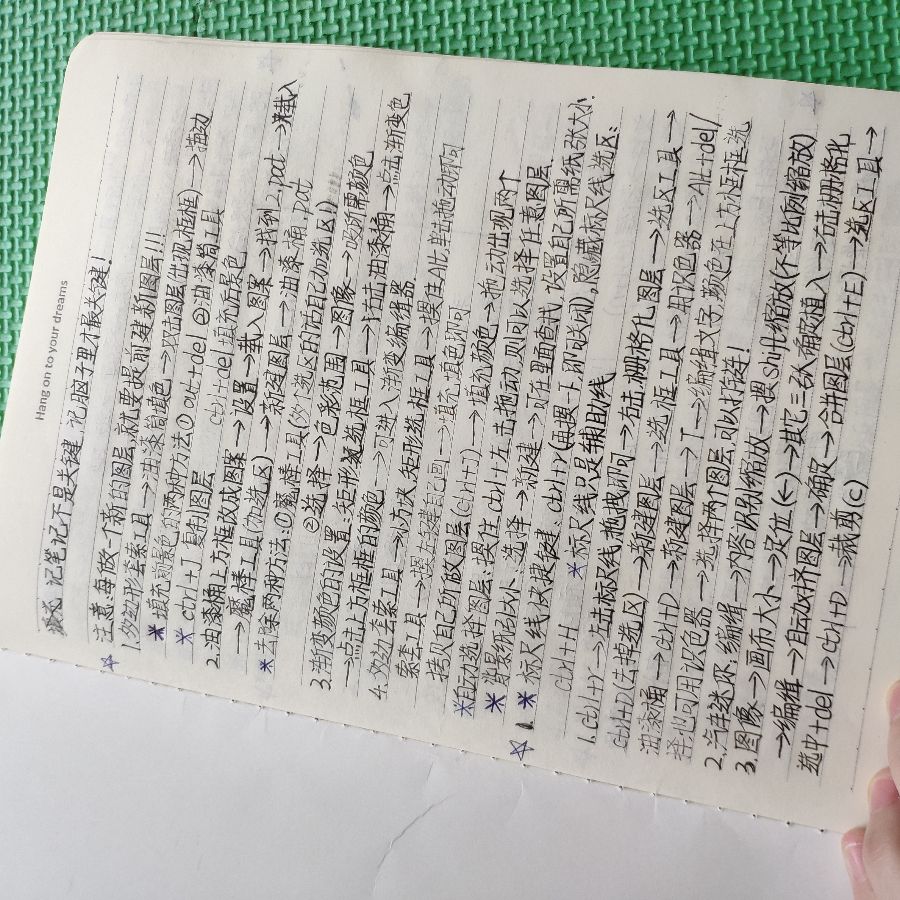 Hang on to your dreams
记笔记不是关键 记脑子里才最关键!
注意:每做一个新的图层,就要提前建新图层!!!
1.多边形套索工具→油漆筒填色→双击图层(出现框框)→描边
*填充前景色的两种方法:① alt+del ②油漆筒工具
*ctrl+J 复制图层 ctrl+del 填充后景色
2.油漆桶上方框改成图案→设置→载入图案→找到2.pat→载入
→魔棒工具(勾选区)→新建图层→油漆桶.pat
*去除两种方法:①魔棒工具(多个选区的话记加选区!!)
②选择→色彩范围→图像→吸所需颜色
3.渐变颜色的设置:矩形选框工具→右击油漆桶→点击渐变色
→点击上方框框的颜色→可进入渐变编辑器
4.多边套索工具→小方块,矩形选框工具→摁住Alt,单击拖动即可
索套工具→摁左键自己画→填充填色即可
拷贝自己所做图层(ctrl+J)→填充颜色→拖动出现两个
*自动选择图层:摁住ctrl左击拖动,则可以选择任意图层
*背景纸张大小:选择→新建→可在里面尝试,设置自己所需纸张大小.
1.*标尺线快捷键:ctrl+r(再摁一下,即可关闭),隐藏标尺线选区:
ctrl+H *标尺线只是辅助线
1.ctrl+r→左击标尺线拖拽即可→右击栅格化图层→选区工具→
ctrl+D(去掉选区)→新建图层→选框工具→用识色器→Alt+del/
油漆桶→ctrl+D→新建图层→T→编辑文字,颜色在上方框框选
择也可用识色器→选择两个图层,可以打链!
2.汽车迷你:编辑→内容识别缩放→摁shift缩放(不等比例缩放)
3.图像→画布大小→定位(←)→其它三张确定植入→右击栅格化
→编辑→自动对齐图层→确定→合并图层(ctrl+E)→选区工具→
选中+del→ctrl+D→裁剪(c)